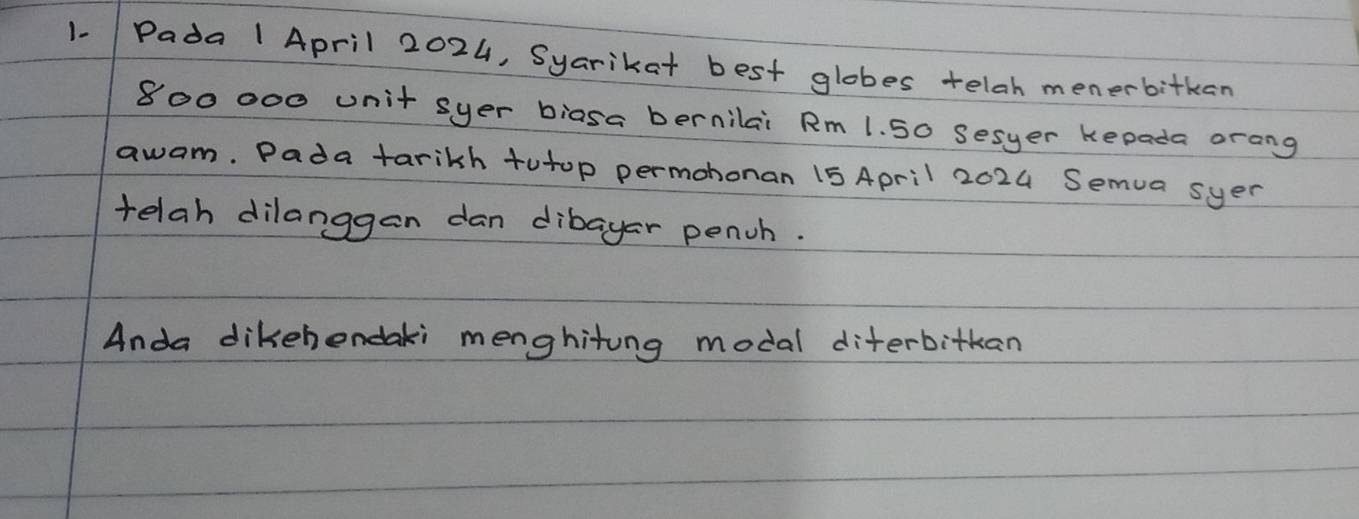 1. Pada 1 April 2024, Syarikat best globes telah menerbitkan
800 000 unit syer biasa bernilai Rm 1.50 sesyer kepada orang
awam. Pada tarikh tutup permohonan 15 April 2024 Semua syer
telah dilanggan dan dibayar penuh.
Anda dikehendaki menghitung modal diterbitkan